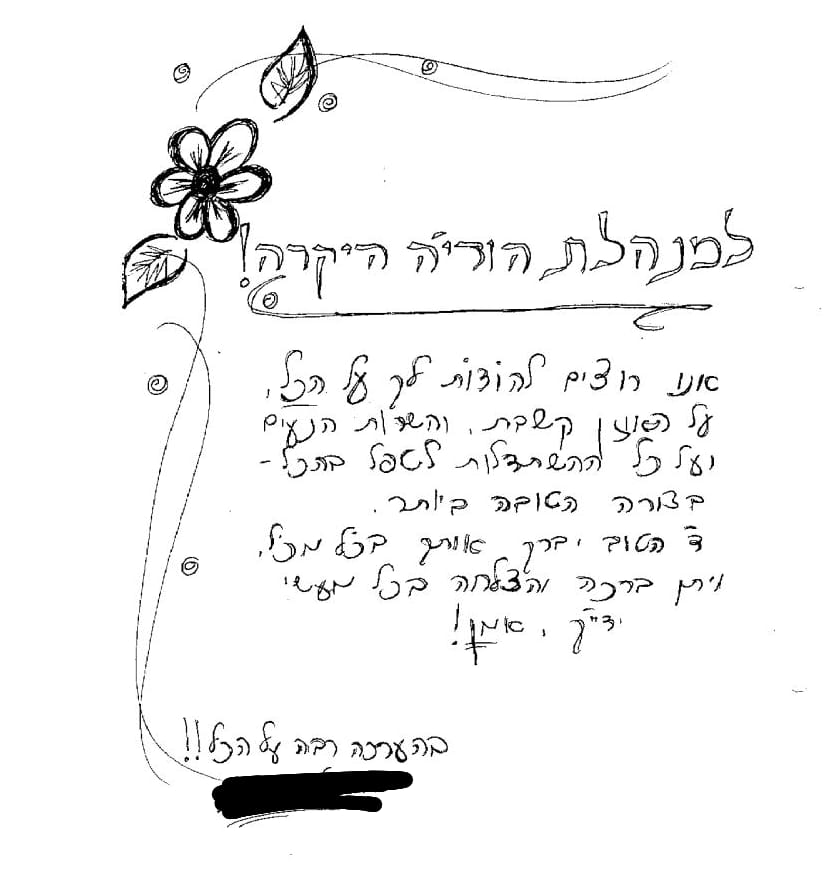 למנהלת הודי'ה היקרה!
אנו רוצים להודות לך על הכל,
על האוזן קשבת, והשרות הנעים
ועל כל ההשתדלות לטפל בהכל -
בצורה הטובה ביותר.
ד' הטוב יברך אותך בכל מכל,
ויתן ברכה והצלחה בכל מעשי
ידי"ך, אמן!
בהערכה רבה על הכל!!